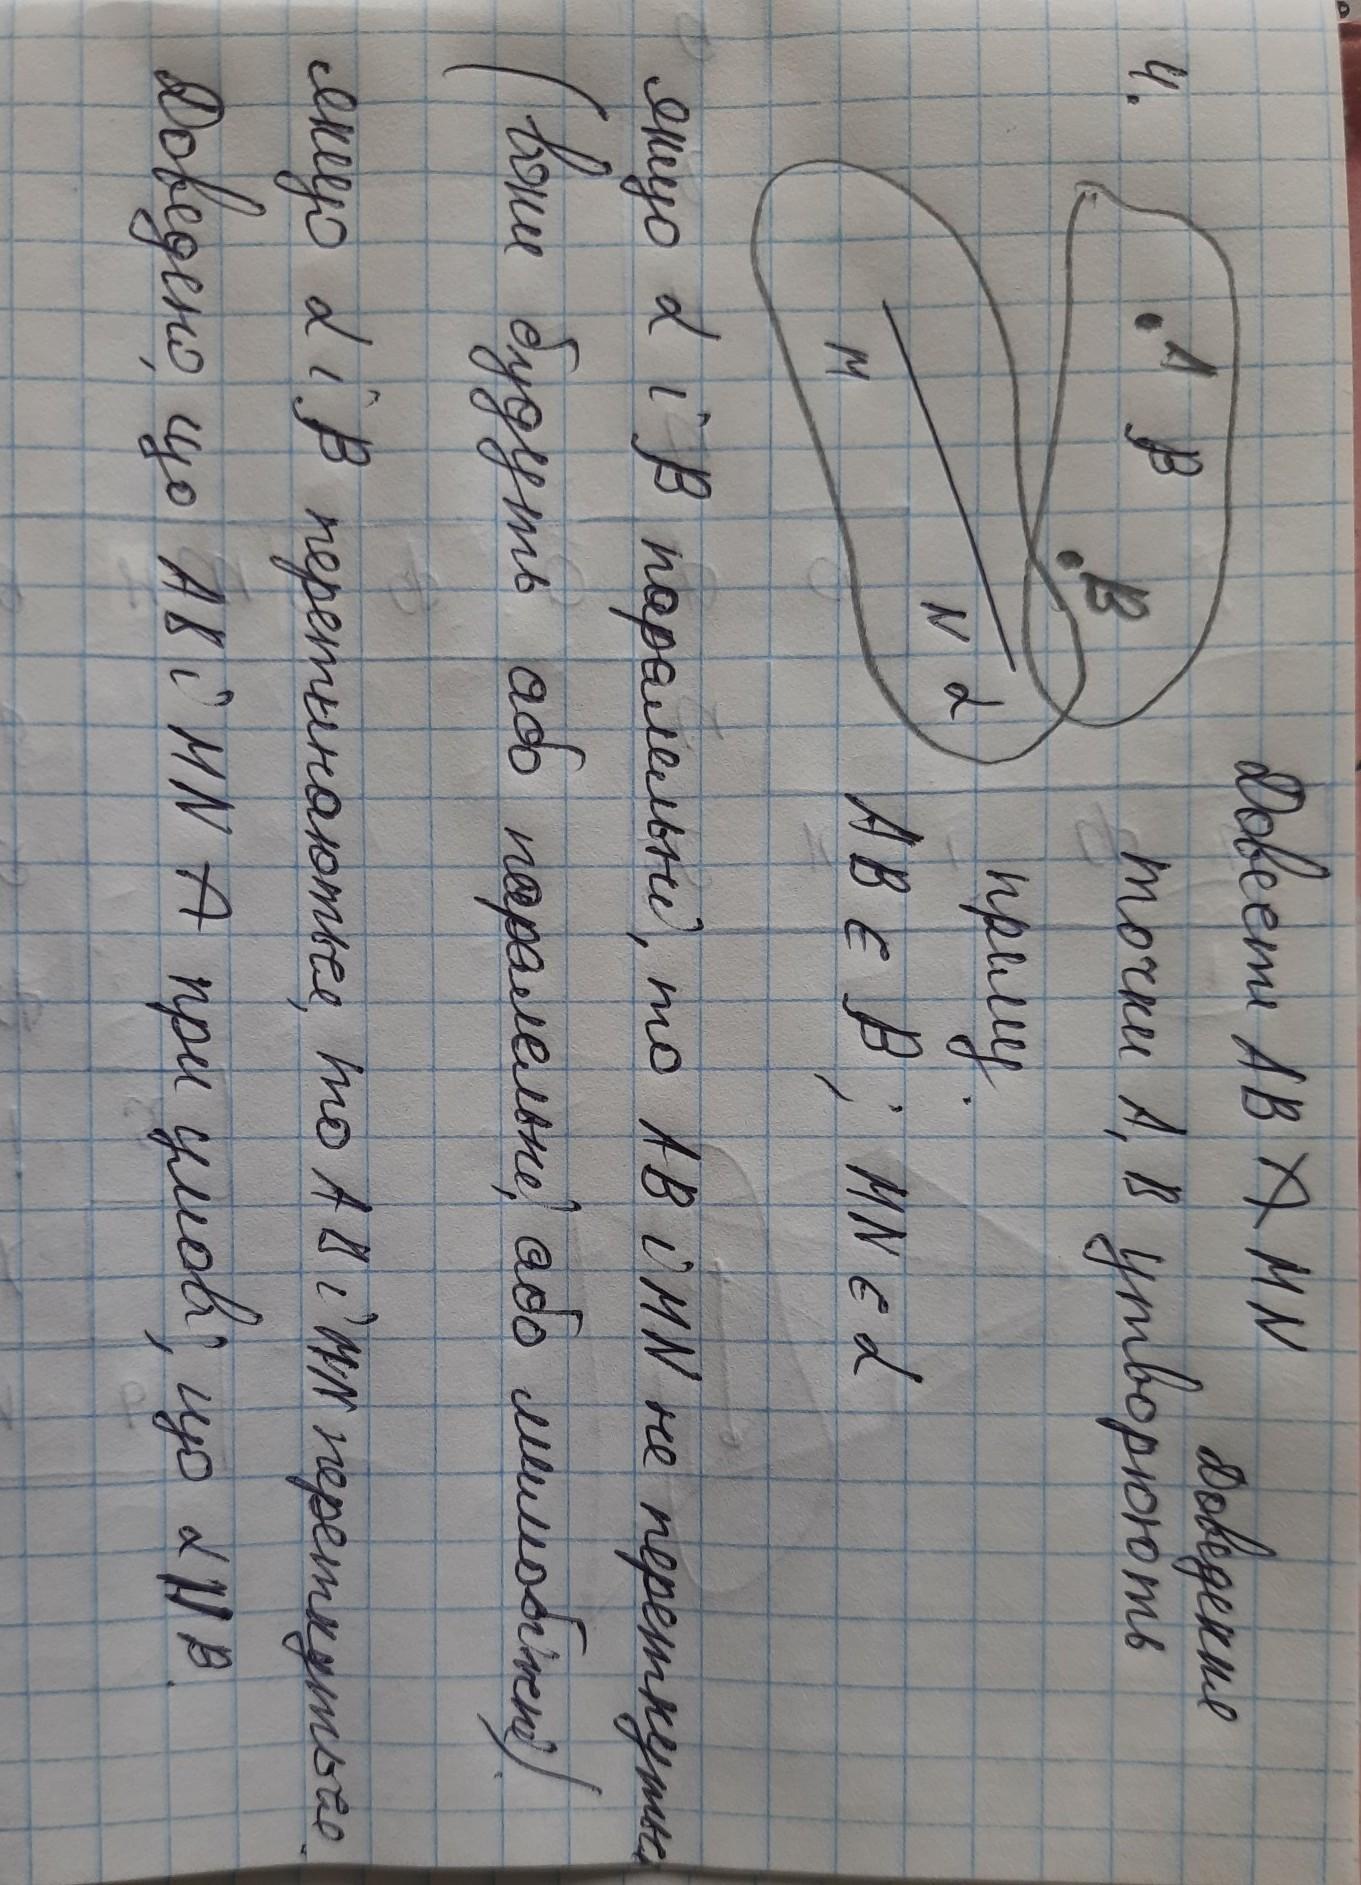 4.
Довести AB ∦ MN
Доведення
точки A, B утворюють
пряму.
AB ∈ β; MN ∈ α
A β
B
M
N α
якщо α і β паралельні, то AB і MN не перетнуться
(вони будуть або паралельні, або мимобіжні).
якщо α і β перетинаються, то AB і MN перетнуться.
Доведено, що AB і MN ∦ при умові, що α ∦ β.